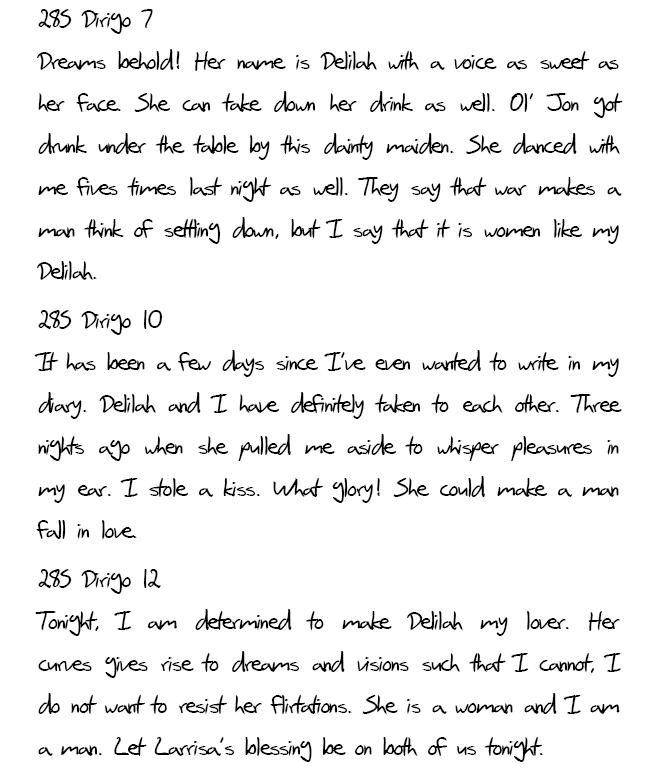 285 Dirigo 7
Dreams behold! Her name is Delilah with a voice as sweet as
her face. She can take down her drink as well. Ol' Jon got
drunk under the table by this dainty maiden. She danced with
me fives times last night as well. They say that war makes a
man think of settling down, but I say that it is women like my
Delilah.
285 Dirigo 10
It has been a few days since I've even wanted to write in my
diary. Delilah and I have definitely taken to each other. Three
nights ago when she pulled me aside to whisper pleasures in
my ear. I stole a kiss. What glory! She could make a man
fall in love.
285 Dirigo 12
Tonight, I am determined to make Delilah my lover. Her
curves gives rise to dreams and visions such that I cannot, I
do not want to resist her flirtations. She is a woman and I am
a man. Let Larrisa's blessing be on both of us tonight.